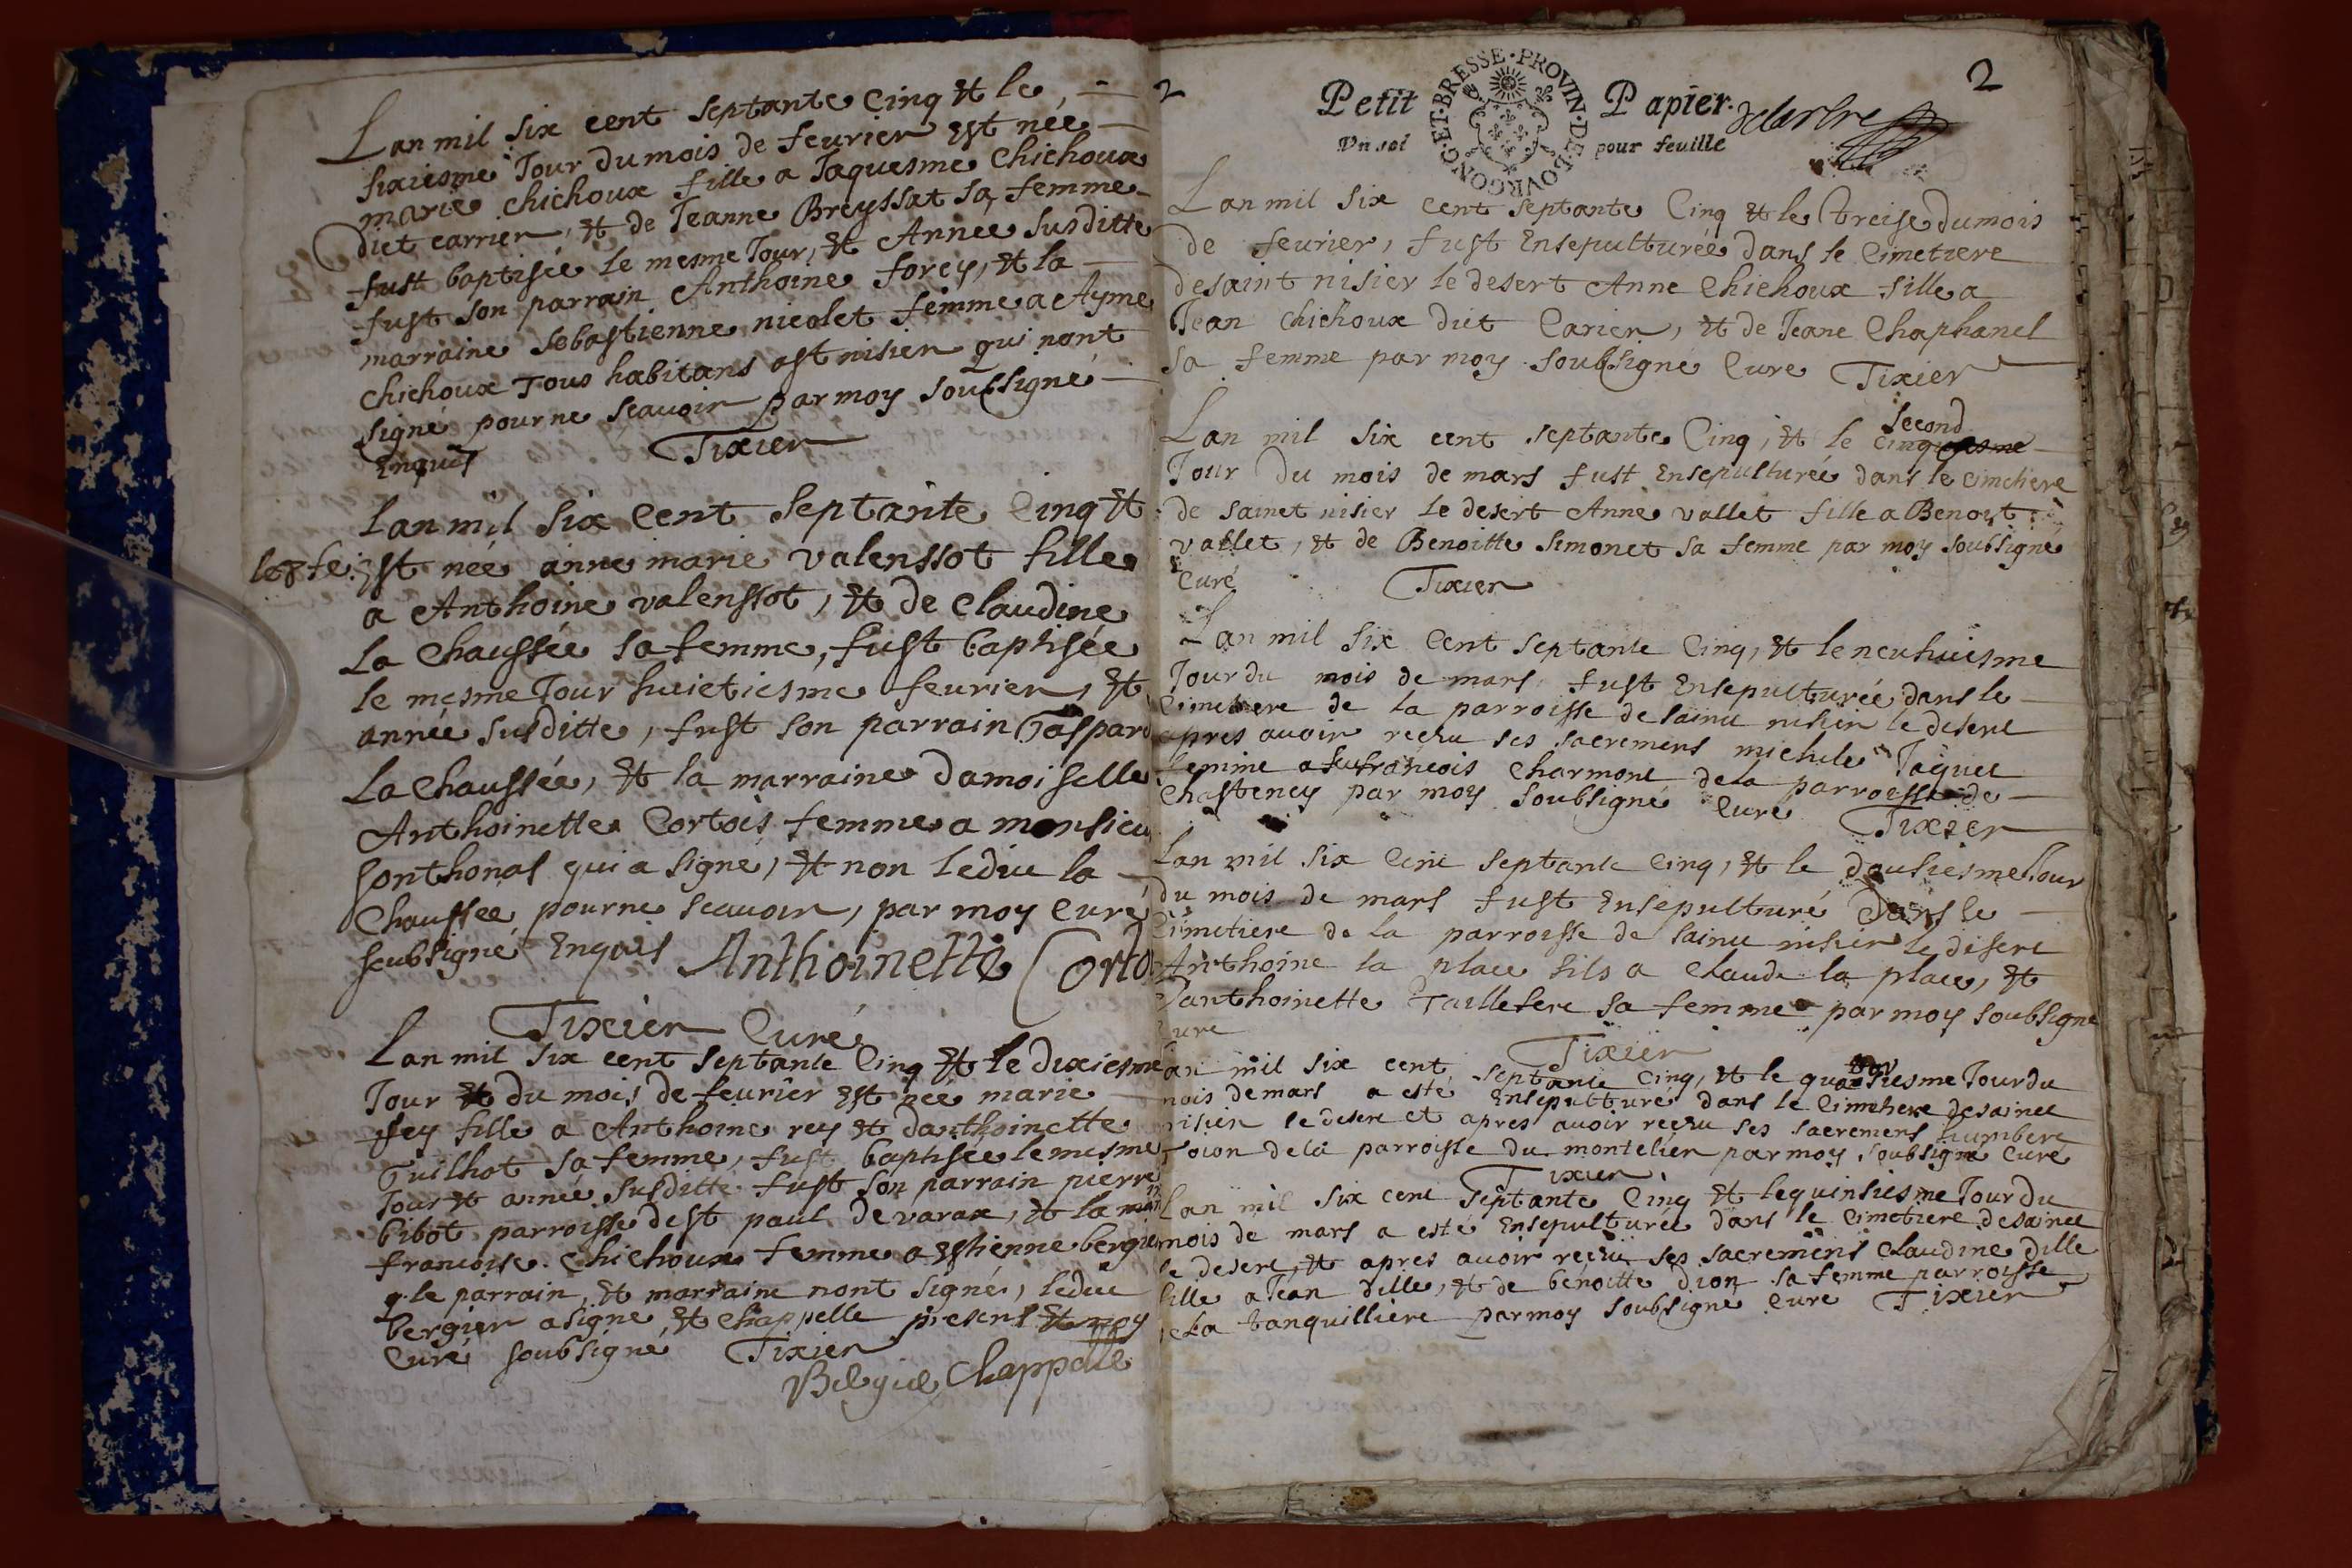 Lan mil six cent septante Cinq et le
sixiesme Jour du mois de feurier est née
marie chichoux fille a Jaquesme Chichoux
dict carrier, et de Jeanne Breyssat sa femme
fust baptisée le mesme Jour, et Année susditte
fust son parrain Anthoine forey, et la
marraine sebastienne nicolet femme a Ayme
chichoux Tous habitans a st nisier qui nont
signé pour ne scauoir par moy soubsigné
Enquis Tixier
Lan mil six Cent septante Cinq et
le 8 fe: Est née anne marie valenssot fille
a Anthoine valenssot, et de claudine
La Chaussée sa femme, fust baptisée
le mesme Jour huictiesme feurier, et
année susditte, fust son parrain Gaspard
La Chaussée, et la marraine damoiselle
Anthoinette Cortois femme a monsieu
Sonthonas qui a signé, et non ledict la
Chaussee pour ne scauoir, par moy Curé
soubsigné Enquis Anthoinette Corto
Tixier Curé
Lan mil six cent septante Cinq et le dixiesme
Jour et du mois de feurier est née marie
rey fille a Anthoine rey et danthoinette
Guilhot sa femme, fust baptisée le mesme
Jour et année susditte fust son parrain pierre
bibot parroisse de st paul de varax, et la mar
francoise chichoux femme a estienne bergier
q. le parrain, et marraine nont signé, ledict
bergier a signe et chappelle present et moy
Curé soubsigné Tixier
Chappelle
2
Petit Papier. 2
BRESSE·PROVIN·DE·BOVRGONG·ET·
Vn sol pour feuille
Lan mil six cent septante Cinq et le treise du mois
de feurier, fust Ensepulturée dans le Cimetiere
de saint nisier le desert Anne Chichoux fille a
Jean chichoux dict Carier, et de Jeane Chaphanel
sa femme par moy soubsigné Curé Tixier
second
Lan mil six cent septante Cinq, et le cinquiesme
Jour du mois de mars fust Ensepulturée dans le cimetiere
de sainct nisier le desert Anne vallet fille a Benoist
vallet, et de Benoitte simonet sa femme par moy soubsigné
Curé Tixier
Lan mil six Cent septante Cinq, et le neuhuiesme
Jour du mois de mars fust Ensepulturée dans le
Cimetiere de la parroisse de sainct nisier le desert
apres auoir reçeu ses sacremens michele Jaquet
femme a feu francois Charmont de la parroisse de
Chasteney par moy soubsigné Curé Tixier
Lan mil six Cent septante Cinq, et le dousiesme Jour
du mois de mars fust Ensepulturé dans le
Cimetiere de la parroisse de sainct nisier le desert
Anthoine la place fils a claude la place, et
danthoinette Taillefert sa femme par moy soubsigné
Curé
Tixier
Lan mil six cent septante Cinq, et le quatorsiesme Jour du
mois de mars a esté Ensepulturé dans le Cimetiere de sainct
nisier le desert et apres auoir reçeu ses sacremens humbert
de la parroisse du montelier par moy soubsigné Curé
Tixier
Lan mil six cent septante Cinq et le quinsiesme Jour du
mois de mars a esté Ensepulturée dans le Cimetiere de sainct
le desert, et apres auoir reçeu ses sacremens claudine dille
fille a Jean dille, et de benoitte dion sa femme parroisse
de La tanquilliere par moy soubsigné Curé Tixier